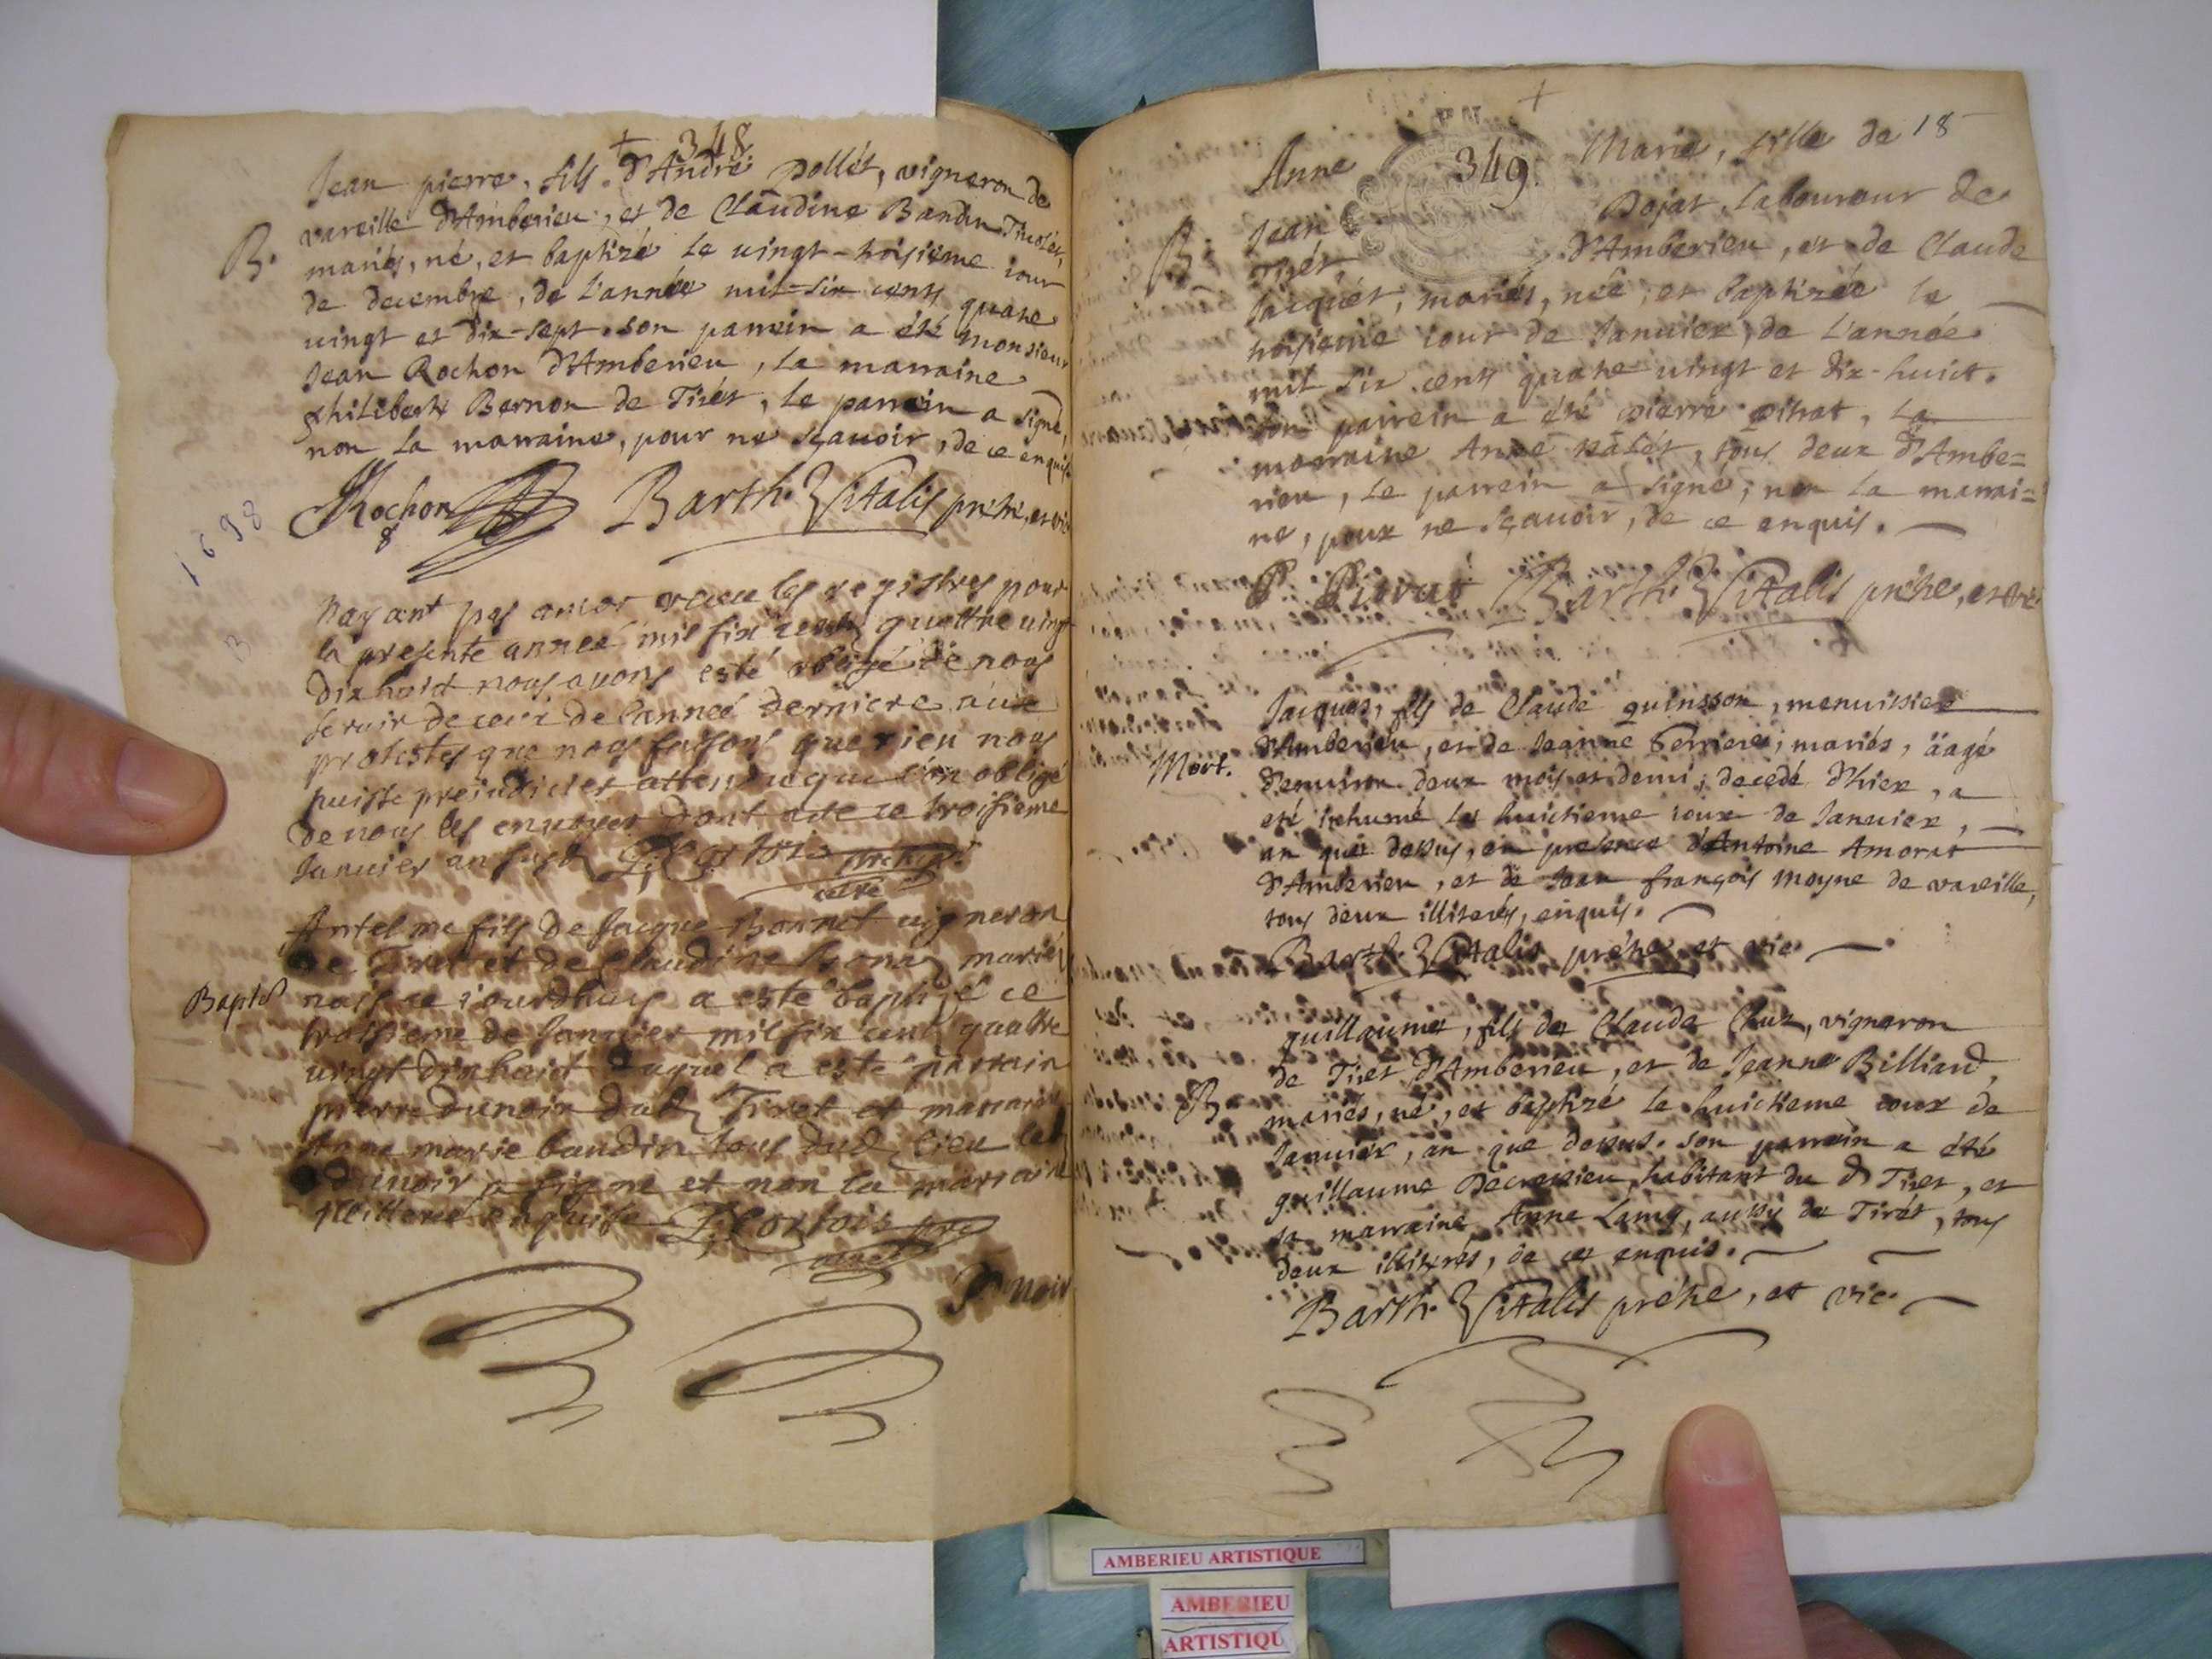 + 348
Jean pierre, fils d'André pollét, vigneron de
vareille d'Amberieu, et de Claudine Bandin Tiret,
mariés, né, et baptizé le vingt-troisieme iour
B.
de decembre, de l'année mil-six cents quatre
vingt et dix-sept. son parrein a été monsieur
Jean Rochon d'Amberieu, la marraine
philiberte Bernon de Tirét, le parrein a signé,
non la marraine, pour ne sçauoir, de ce enquise
JRochon Barth. Vitalis prêtre, et vic
1698
3
Nayant pas ancor receu les registres pour
la presente année mil six cents quattre uingt
dix huict nous auons esté obligé de nous
seruir de ceux de lanneé derniere auec
protestes que nous faisons que rien nous
puisse preiudicier attendu que l'on obligé
de nous les enuoyer dont acte ce troisieme
Januier an susd
curé
Antelme fils de Jacque Bonnet uigneron
de Tiret et de Claudine mariés
Baptes
nais ce iourdhuy a esté baptizé ce
troisieme de Januier mil six cent quattre
uingt dix huict duquel a esté parrain
pierre dunoir dud Tiret et marraine
Anne marie baudin tous dud lieu led
dunoir a signé et non la marraine
illiterée enquise
curé
Dunoir
+
349.
18
Anne Marie, fille de
Jean Pojat, laboureur de
B.
Tirét, d'Amberieu, et de Claude
Jacquét, mariés, née, et baptizée le
troisieme iour de Januier, de l'année
mil six cents quatre vingt et dix-huict.
son parrein a été pierre pitrat, la
marraine Anne valét, tous deux d'Ambe=
rieu, le parrein a signé, non la marrai=
ne, pour ne sçauoir, de ce enquis.
P Barth. Vitalis prêtre, et vic
Jacques, fils de Claude quinsson, menuissier
d'Amberieu, et de Jeanne Ferriere, mariés, äagé
Mort.
d'enuiron deux mois et demi, decedé d'hier, a
eté inhumé le huictieme iour de Januier,
an que dessus, en presence d'Antoine Amorat
d'Amberieu, et de Jean françois moyne de vareille,
tous deux illiterés, enquis.
Barth. Vitalis prêtre et vic
guillaume, fils de Claude Chut, vigneron
de Tiret d'Amberieu, et de Jeanne Billiard,
B.
mariés, né, et baptizé le huictieme iour de
Januier, an que dessus. son parrein a été
guillaume Decroisieu, habitant du d Tiret, et
sa marraine Anne Lamy, aussy de Tirét, tous
deux illiterés, de ce enquis.
Barth. Vitalis prêtre, et vic
AMBERIEU ARTISTIQUE
AMBERIEU
ARTISTIQU